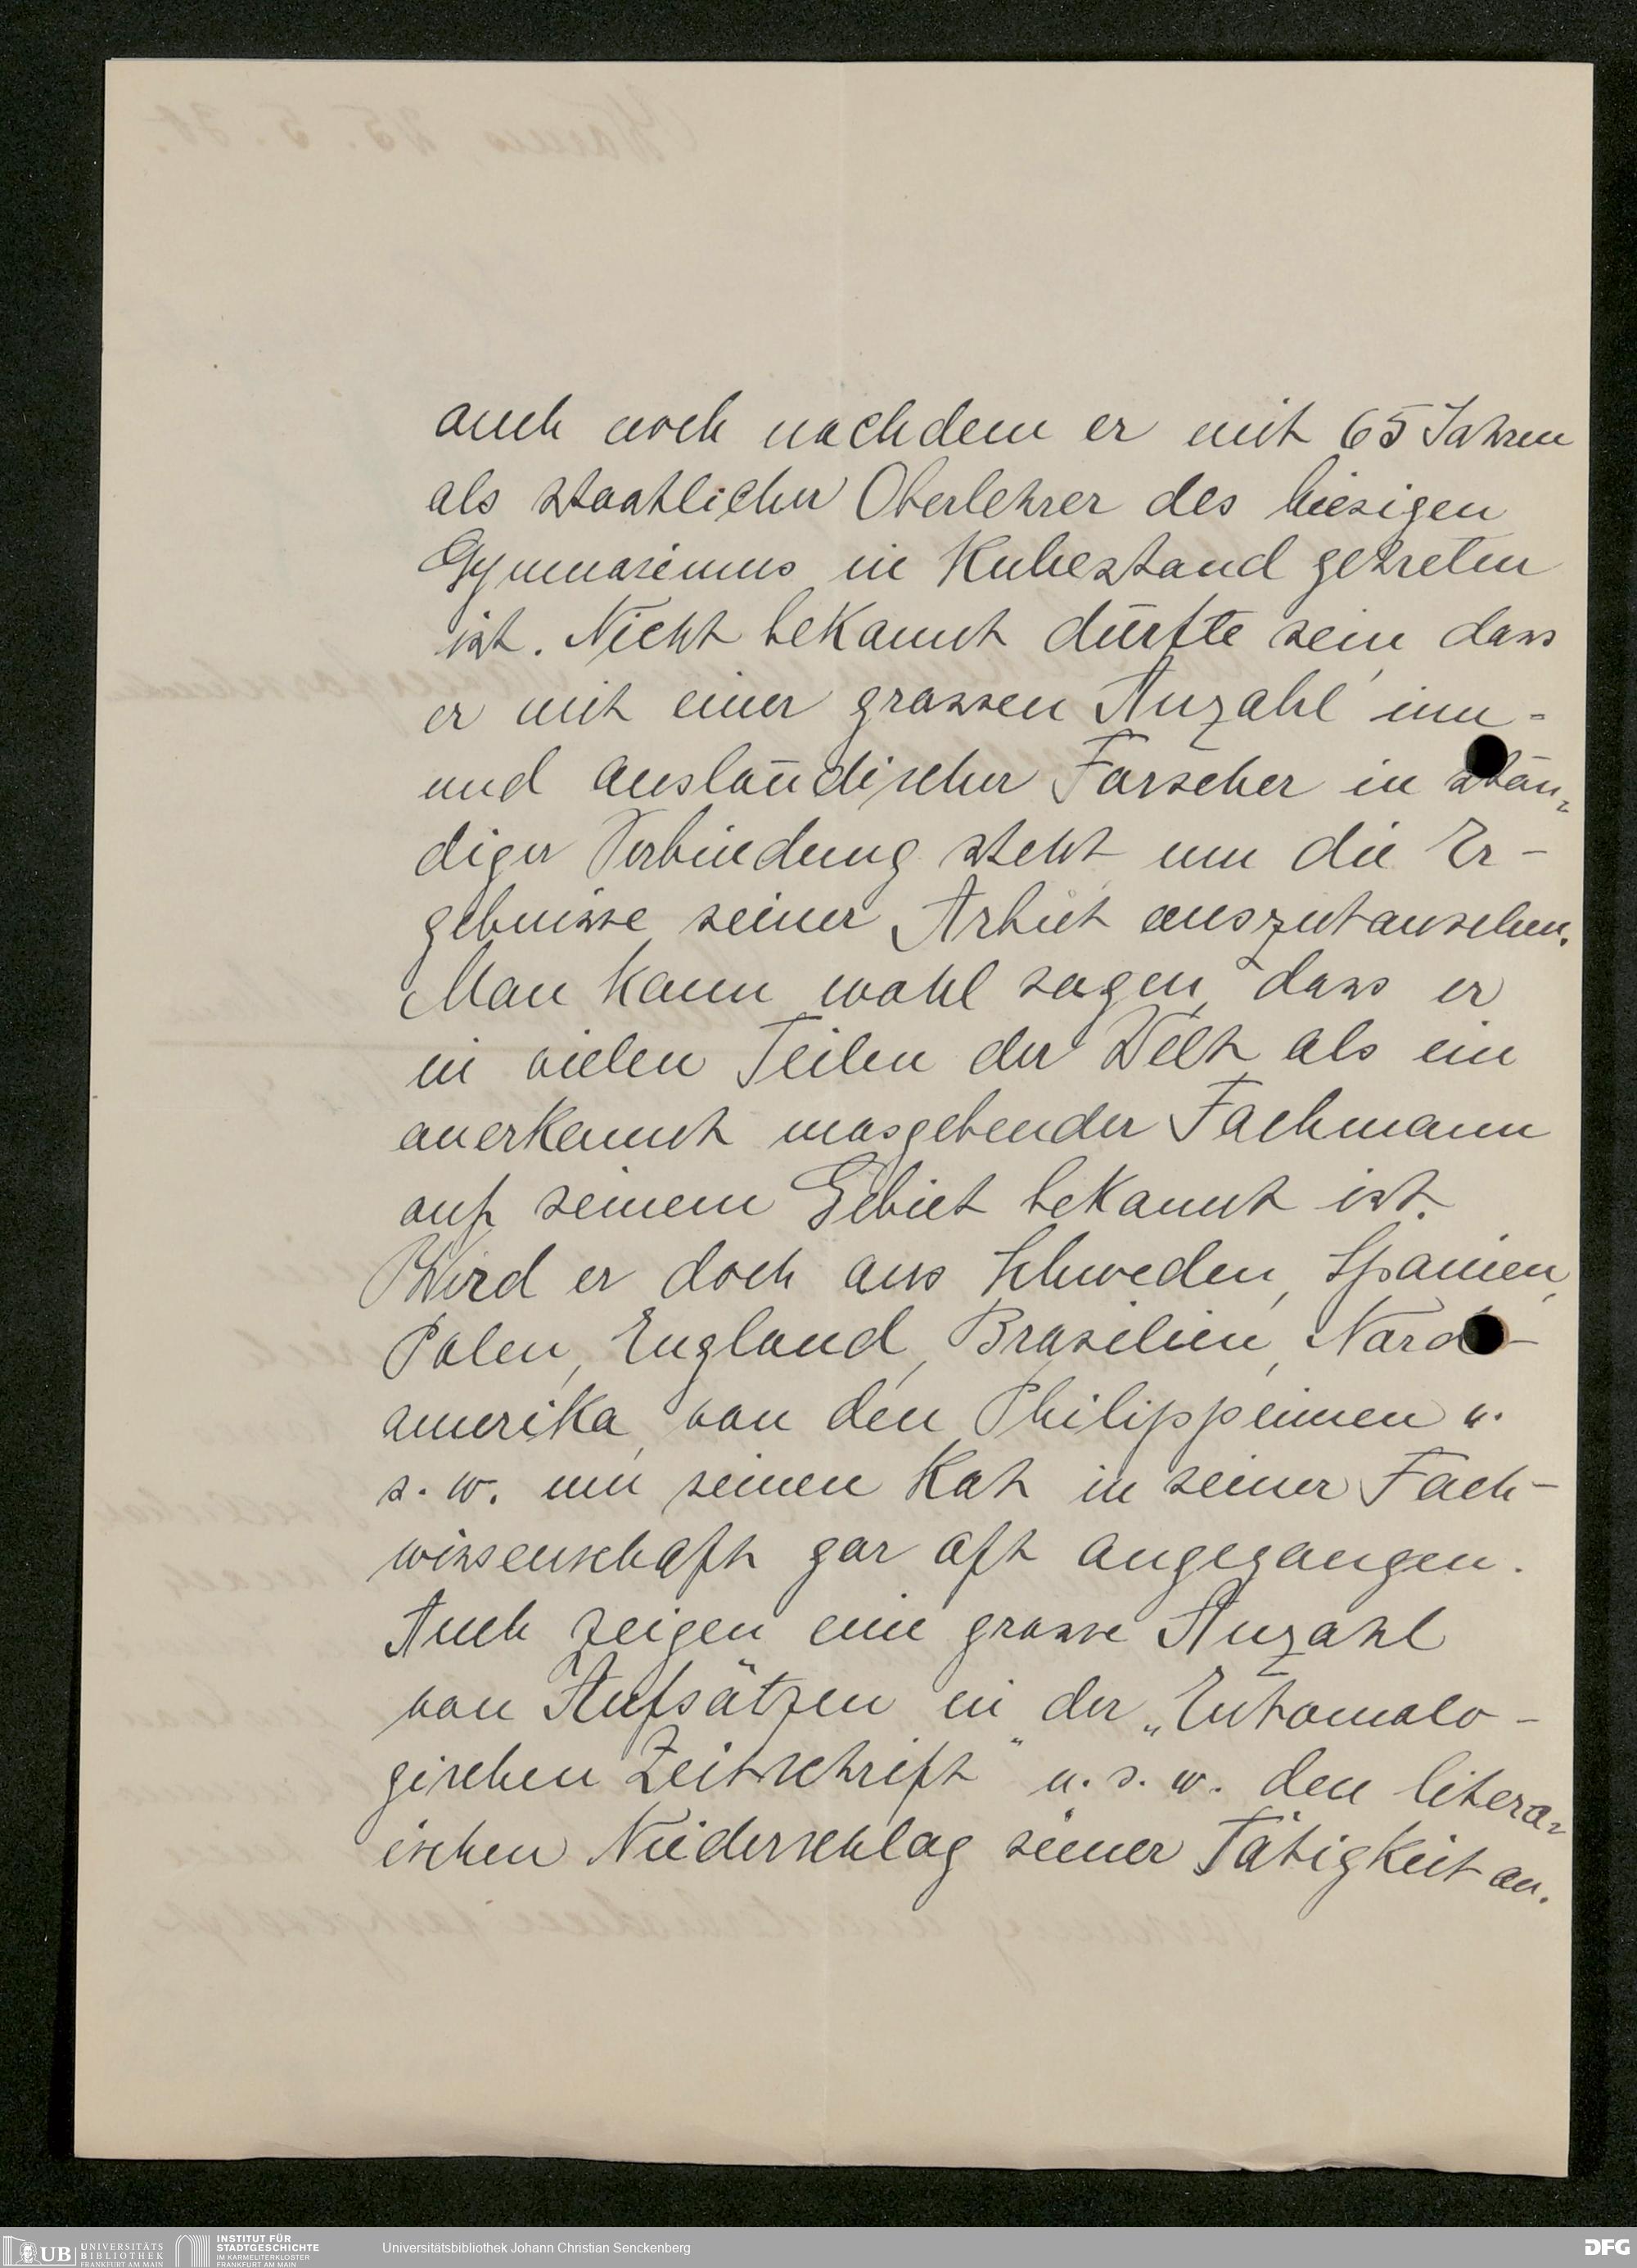 auch noch nachdem er mit 65 Jahren
als staatlicher Oberlehrer des hiesigen
Gymnasiums in Ruhestand getreten
ist. Nicht bekannt dürfte sein dass
er mit einer grossen Anzahl inn-
und ausländischer Forscher in stän-
diger Verbindung steht um die Er-
gebnisse seiner Arbeit auszutauschen.
Man kann wohl sagen, dass er
in vielen Teilen der Welt als ein
anerkannt masgebender Fachmann
auf seinem Gebiet bekannt ist.
Wird er doch aus Schweden, Spanien,
Polen, England, Brasilien, Nord-
amerika, von den Philippinnen u.
s. w. um seinen Rat in seiner Fach-
wissenschaft gar oft angegangen.
Auch zeigen eine grosse Anzahl
von Aufsätzen in der „Entomolo-
gischen Zeitschrift" u. s. w. den litera-
ischen Niederschlag seiner Tätigkeit an.
UB UNIVERSITÄTS
BIBLIOTHEK
FRANKFURT AM MAIN
INSTITUT FÜR
STADTGESCHICHTE
IM KARMELITERKLOSTER
FRANKFURT AM MAIN
Universitätsbibliothek Johann Christian Senckenberg
DFG